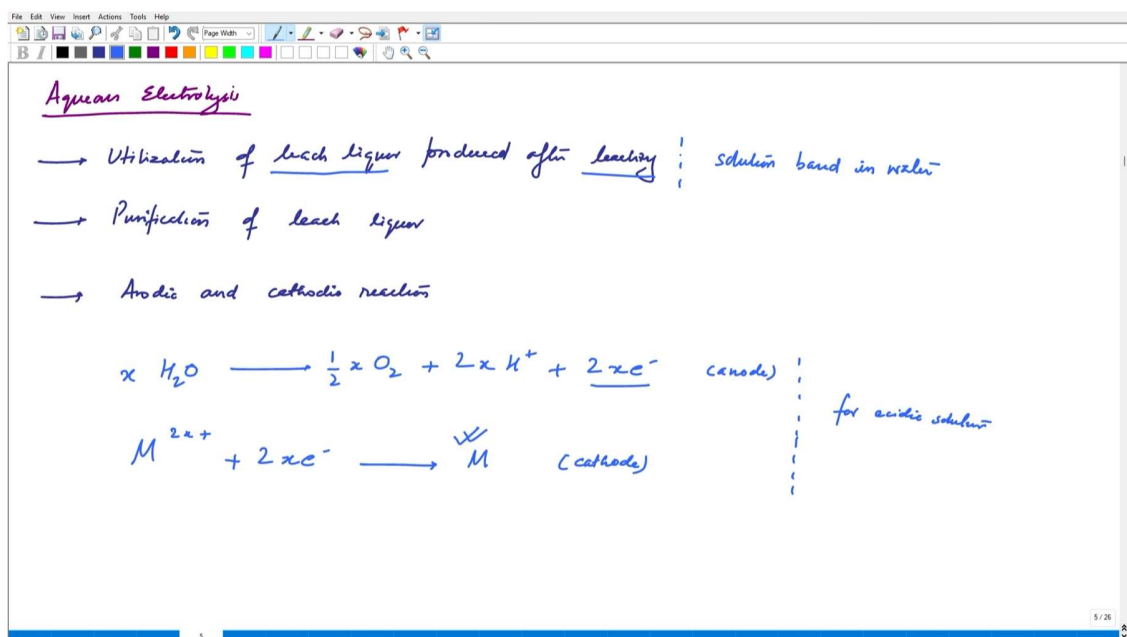 File Edit View Insert Actions Tools Help
Page Width
B I
Aqueous Electrolysis
→ Utilization of leach liquor produced after leaching | solution based in water
→ Purification of leach liquor
→ Anodic and cathodic reactions
x H₂O → 1/2 x O₂ + 2x H⁺ + 2xe⁻ (anode)
for acidic solution
M²ˣ⁺ + 2xe⁻ → M (cathode)
5 / 26
5